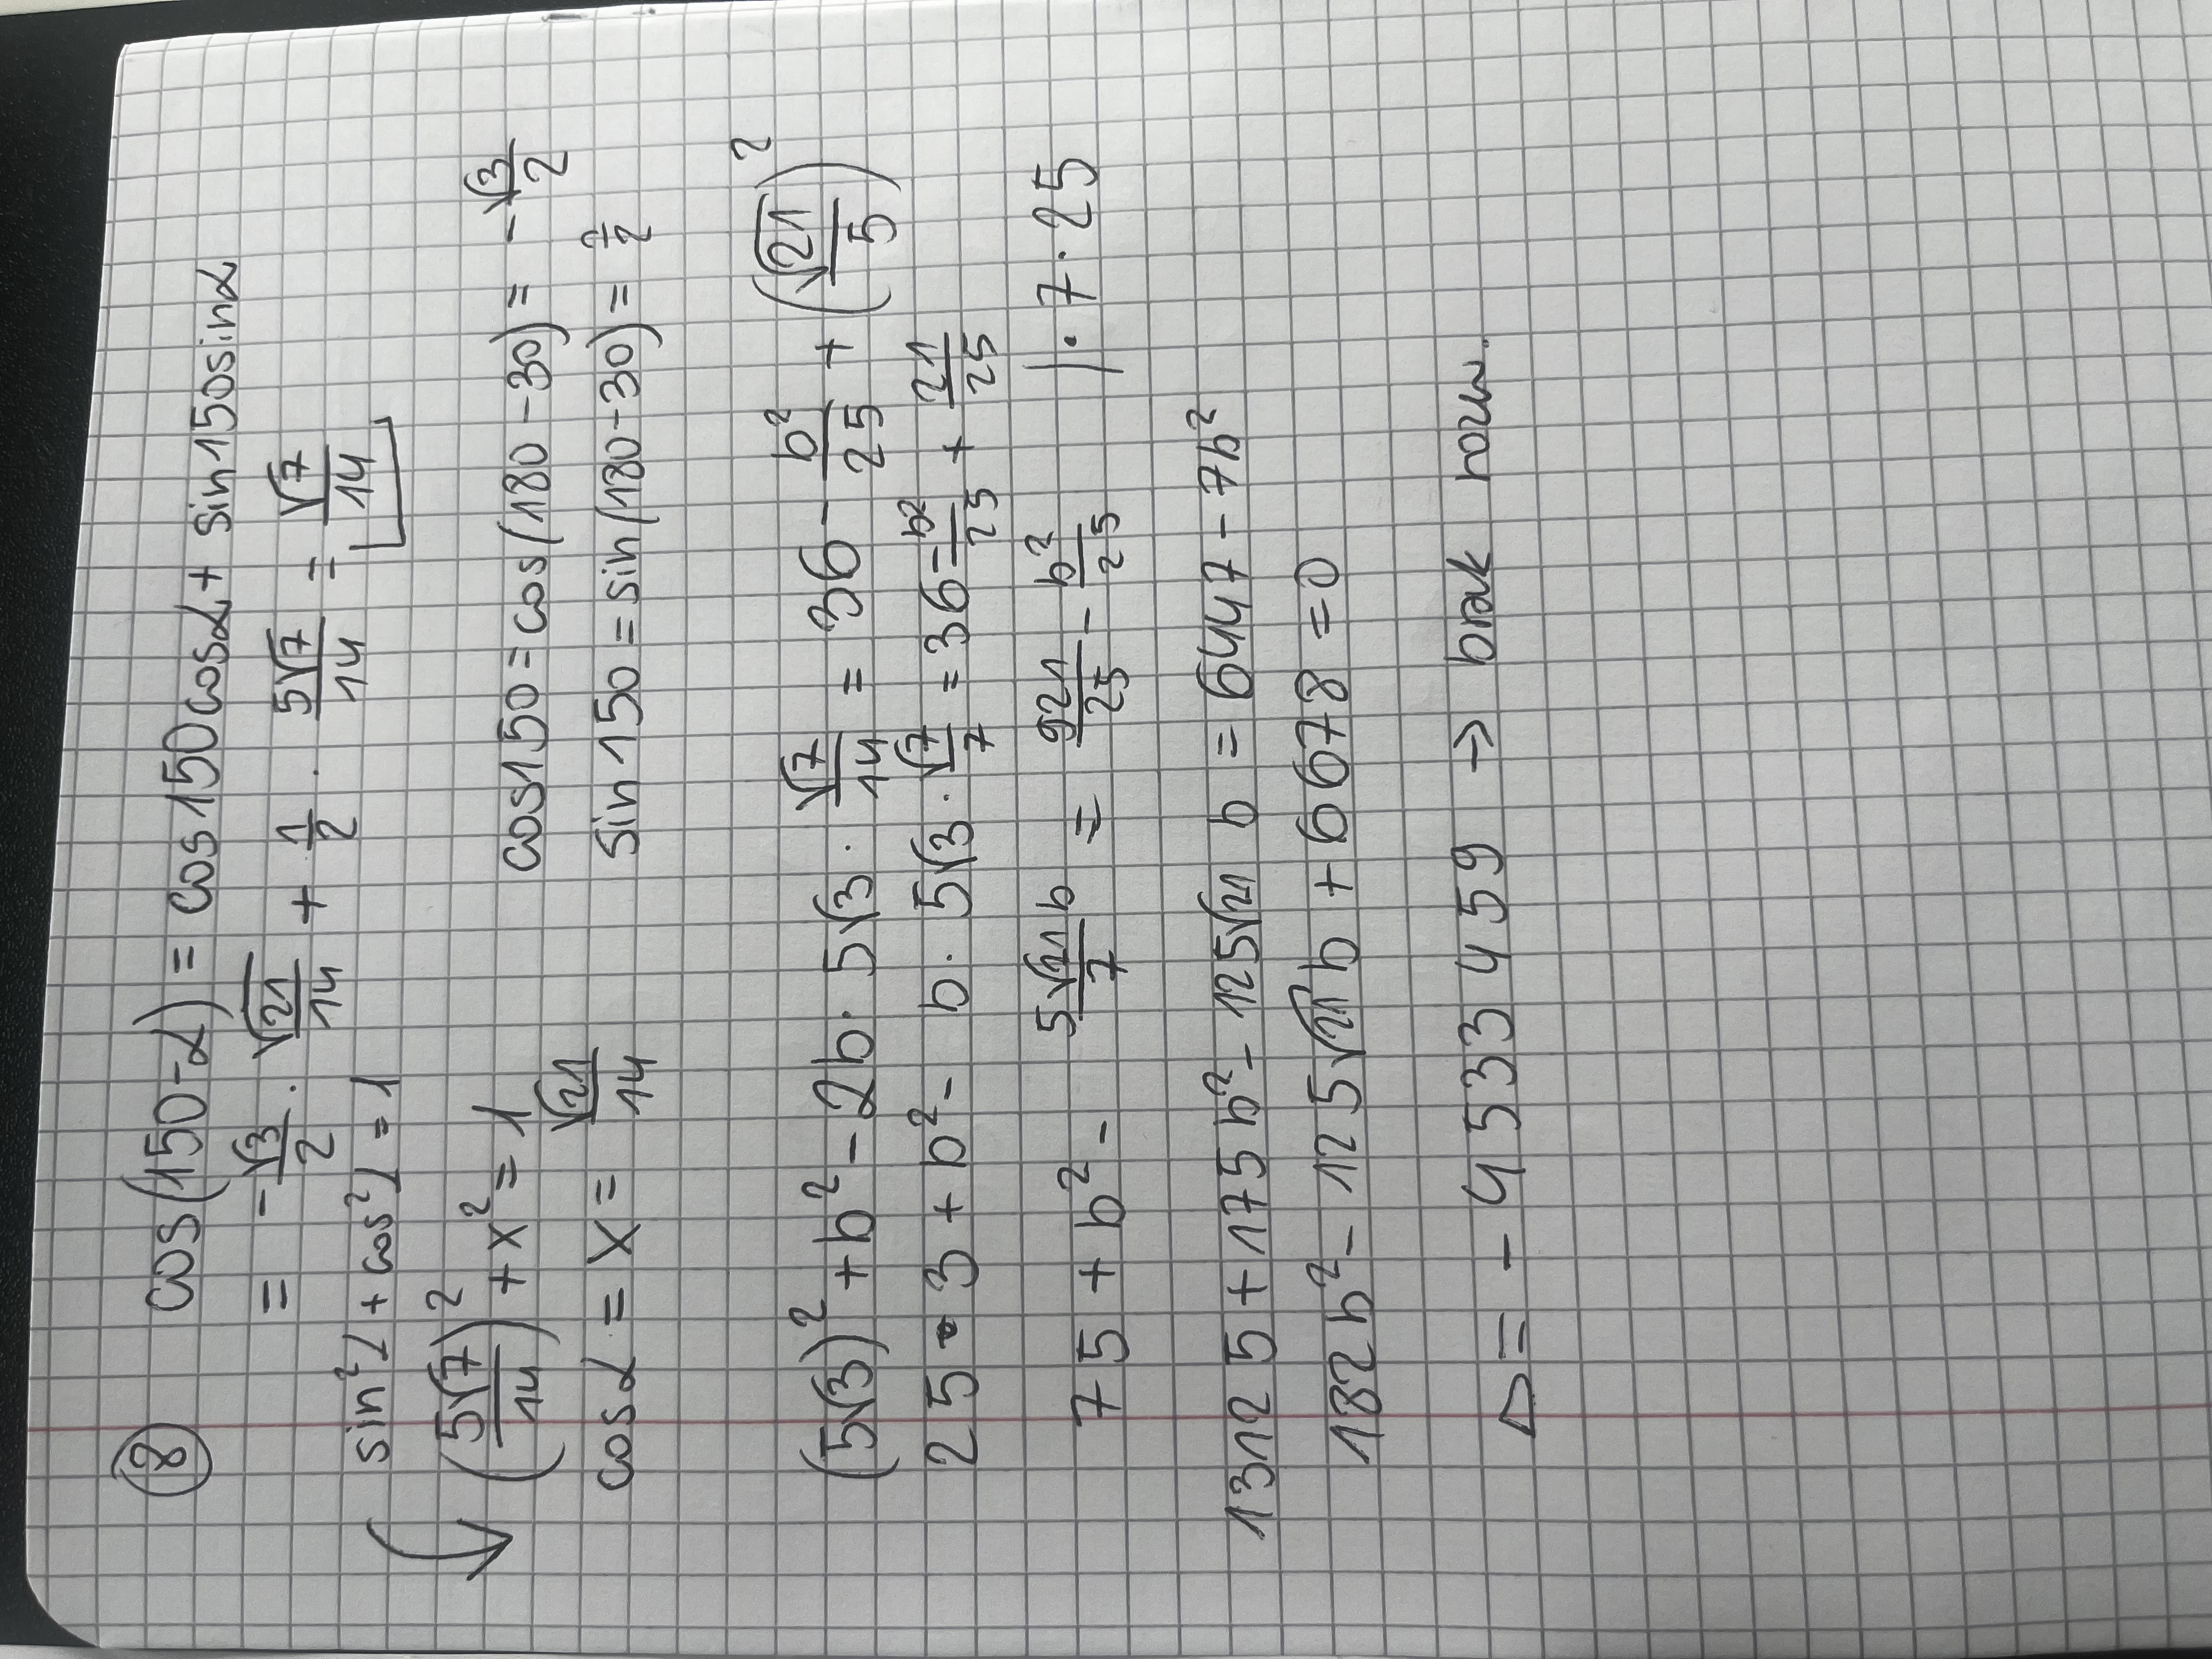 ⑧ cos(150-α) = cos150cosα + sin150sinα
= -√3/2 · √21/14 + 1/2 · 5√7/14 = √7/14
sin²α + cos²α = 1
(5√7/14)² + x² = 1
cos150 = cos(180-30) = -√3/2
cosα = x = √21/14
sin150 = sin(180-30) = 1/2
(5√3)² + b² - 2b · 5√3 · √7/14 = 36 - b²/25 + (√21/5)²
25 · 3 + b² - b · 5√3 · √7/7 = 36 - b²/25 + 21/25
75 + b² - 5√21b/7 = 921/25 - b²/25 | · 7 · 25
13125 + 175b² - 125√21 b = 6447 - 7b²
182b² - 125√21 b + 6678 = 0
Δ = - 4533459 → brak rozw.